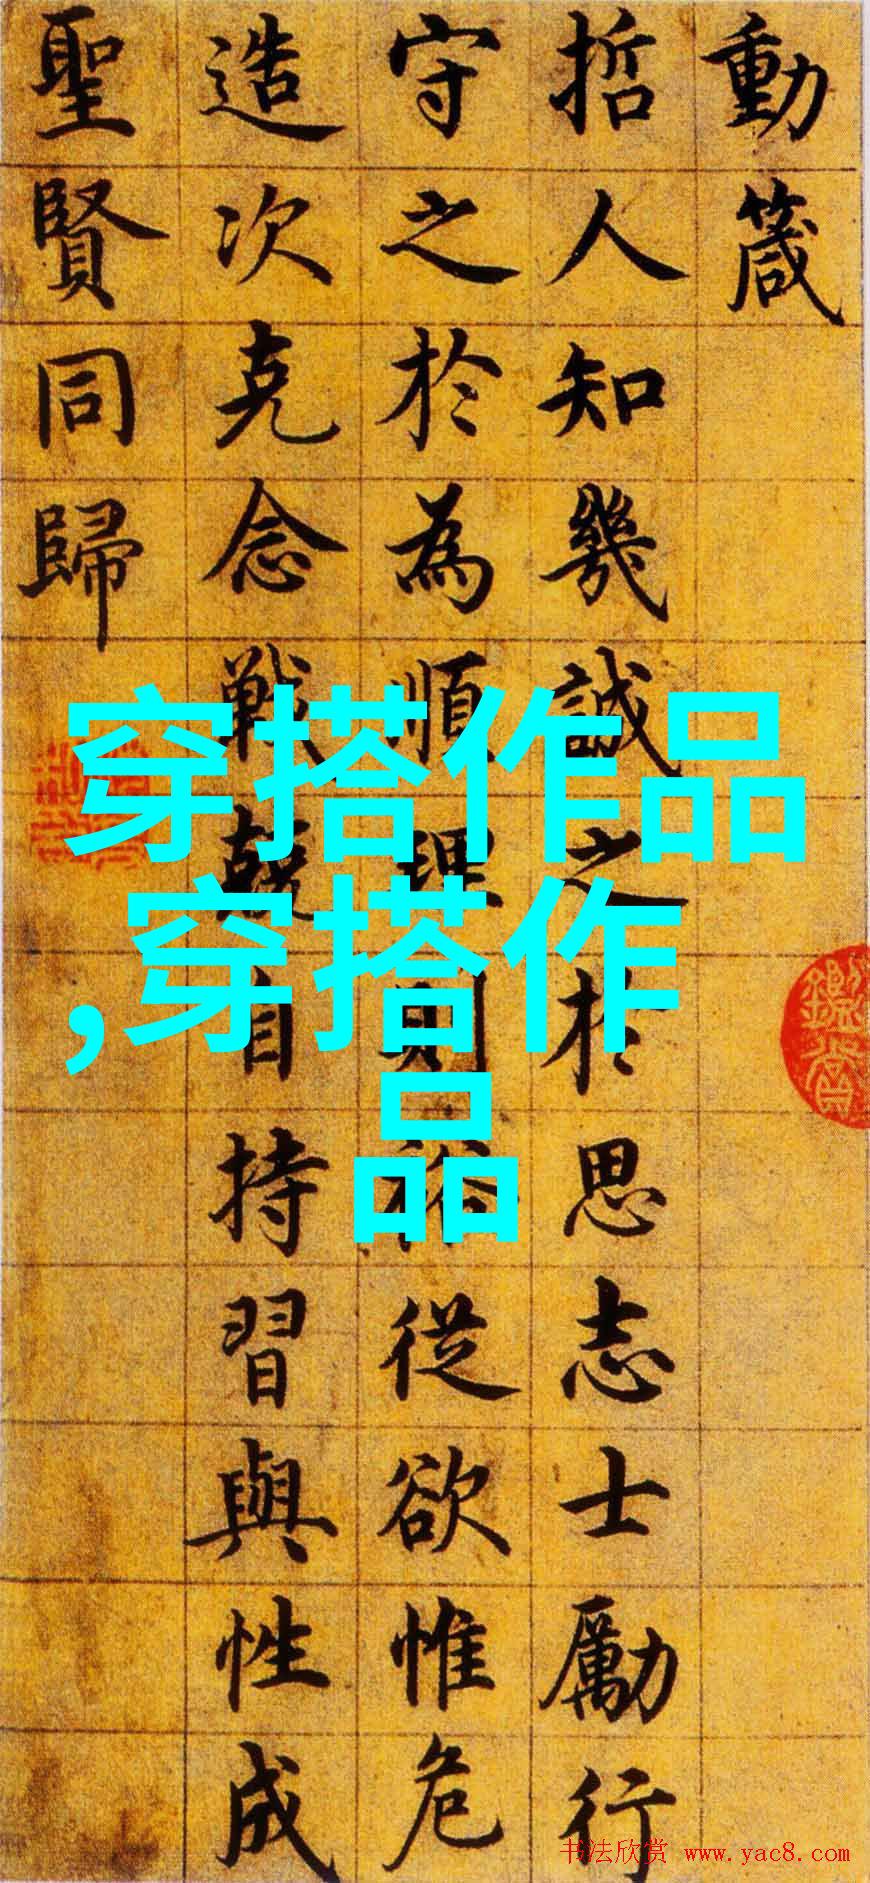 動箴
哲人知幾誠之於思志士勵行
守之於為順理則裕從欲惟危
造次克念戰兢自持習與性成
聖賢同歸
穿搭作品
,穿搭作
品
书法欣赏 www.yac8.com